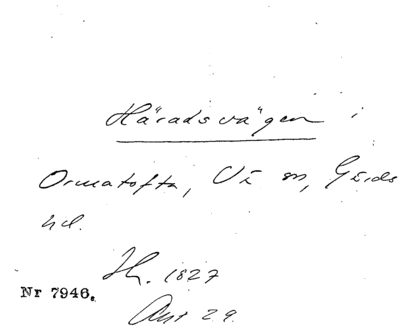 Häradsvägen i
Ormatofta, Vä sn, Gärds
hd.
1827
Nr 7946.
Akt 29.